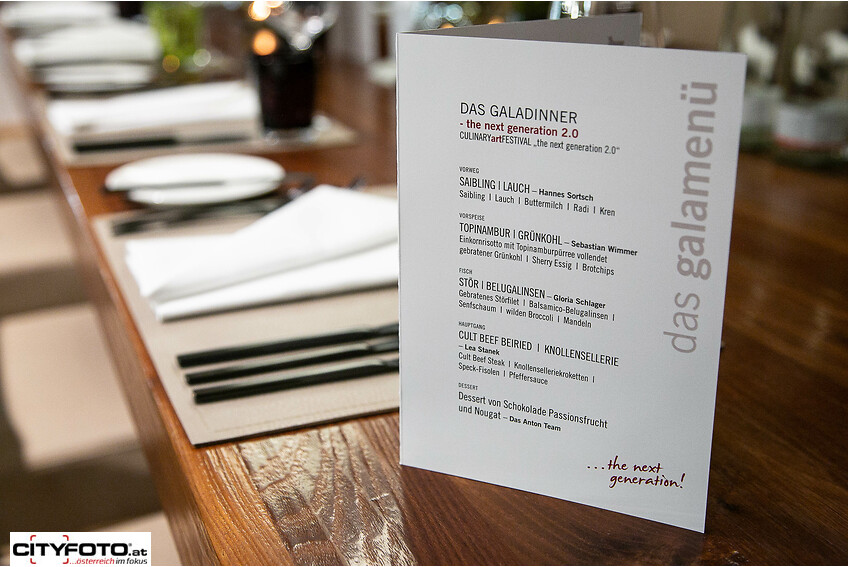 DAS GALADINNER
- the next generation 2.0
CULINARYartFESTIVAL „the next generation 2.0“
VORWEG
SAIBLING | LAUCH – Hannes Sortsch
Saibling | Lauch | Buttermilch | Radi | Kren
VORSPEISE
TOPINAMBUR | GRÜNKOHL – Sebastian Wimmer
Einkornrisotto mit Topinamburpürree vollendet
gebratener Grünkohl | Sherry Essig | Brotchips
FISCH
STÖR | BELUGALINSEN – Gloria Schlager
Gebratenes Störfilet | Balsamico-Belugalinsen |
Senfschaum | wilden Broccoli | Mandeln
HAUPTGANG
CULT BEEF BEIRIED | KNOLLENSELLERIE
– Lea Stanek
Cult Beef Steak | Knollenselleriekroketten |
Speck-Fisolen | Pfeffersauce
DESSERT
Dessert von Schokolade Passionsfrucht
und Nougat – Das Anton Team
...the next
generation!
das galamenü
CITYFOTO®.at
...österreich im fokus